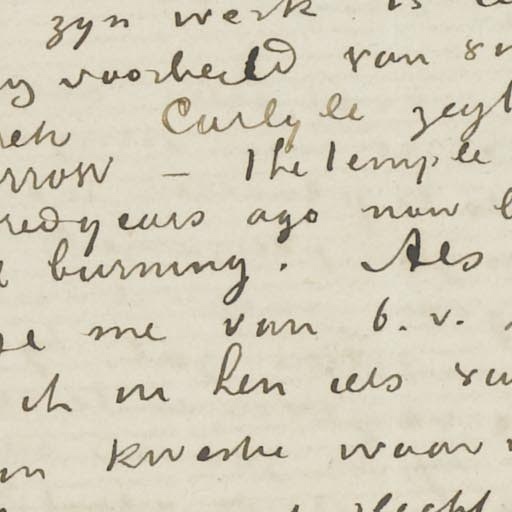 zyn werk is
voorbeeld van
Carlyle zegt
rrow — The Temple
redyears ago now
burning. Als
me van b.v.
ik in hen iets
kwestie waar
slecht